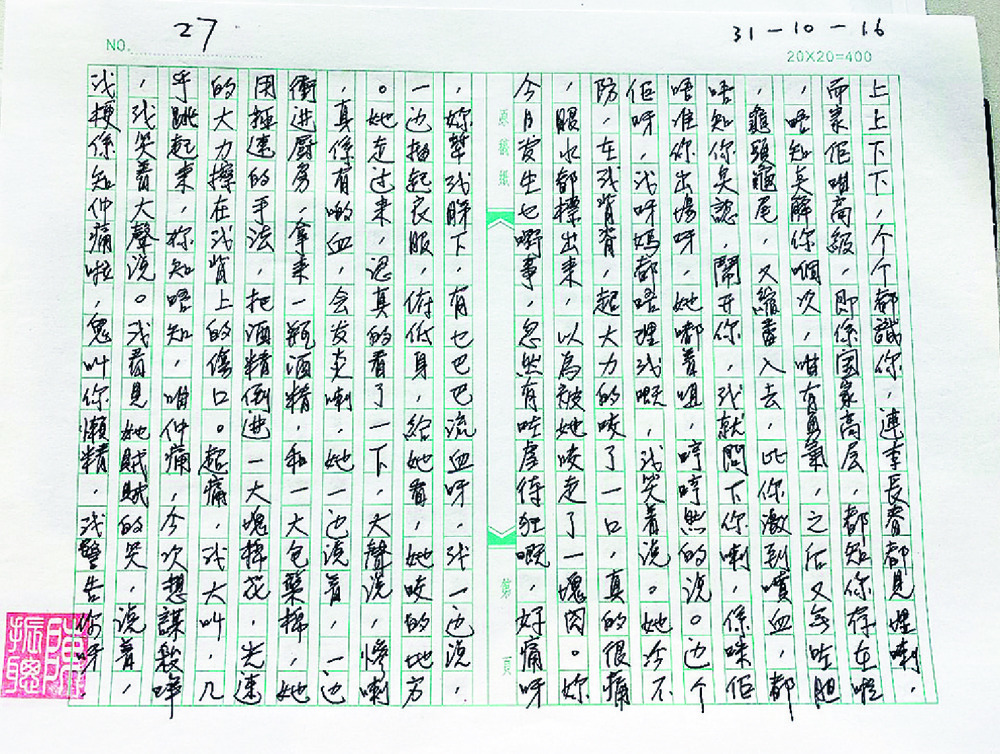 NO. 27
31-10-16
20X20=400
上上下下，个个都識你，連李長春都見埋喇，
而家佢咁高級，即係国家高层，都知你存在啦
，唔知矣解你嗰次，咁有勇氣，之后又无咗胆
，龜頭龜尾，又縮番入去，比你激到噴血，都
唔知你矣認，鬧开你，我就問下你喇，係咪佢
唔准你出場呀，她嘟着咀，哼哼然的说。边个
佢呀，我呀妈都唔理我嘅，我笑着说。她冷不
防，在我背脊，起大力的咬了一口，真的很痛
，眼水都標出来，以為被她咬走了一塊肉。妳
今日发生乜嘢事，忽然有咗虐待狂嘅，好痛呀
原稿紙
第 頁
，妳幫我睇下，有乜巴巴流血呀，我一边说，
一边抽起衣服，俯低身，給她看，她咬的地方
。她走过来，认真的看了一下，大聲说，慘喇
，真係有啲血，会发炎喇，她一边说着，一边
衝进厨房，拿来一瓶酒精，和一大包藥棉，她
用極速的手法，把酒精倒进一大塊棉花，光速
的大力擦在我背上的傷口。超痛，我大叫，几
乎跳起来，妳知唔知，咁仲痛，今次想謀殺咩
，我笑着大聲说。我看見她賊賊的笑，说着，
我梗係知仲痛啦，鬼叫你懶精，我警告你呀，
陳振聰